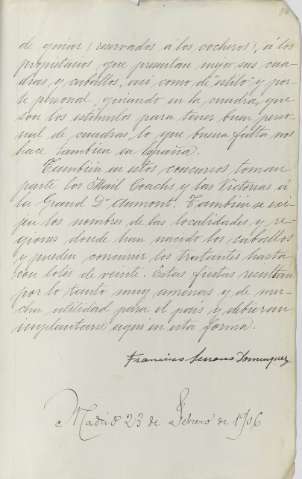 de guiar (reservados á los cocheros), á los
propietarios que presentan mejor sus cua-
dras y caballos, asi como de estilo y por-
te personal, guiando en la cuadra, que
son los estimulos para tener buen perso-
nal de cuadras, lo que buena falta nos
hace tambien en España.
Tambien en estos concursos toman
parte los Mail Coachs y las Victorias á
la Grand D'Aumont. Tambien se exi-
jen los nombres de las localidades y re-
giones donde han nacido los caballos
y pueden concurrir los tratantes hasta
con lotes de veinte. Estas fiestas resultan
por lo tanto muy amenas y de mu-
cha utilidad para el pais y debieran
implantarse aqui en esta forma.
Francisco Serrano Dominguez
Madrid 23 de Febrero de 1906